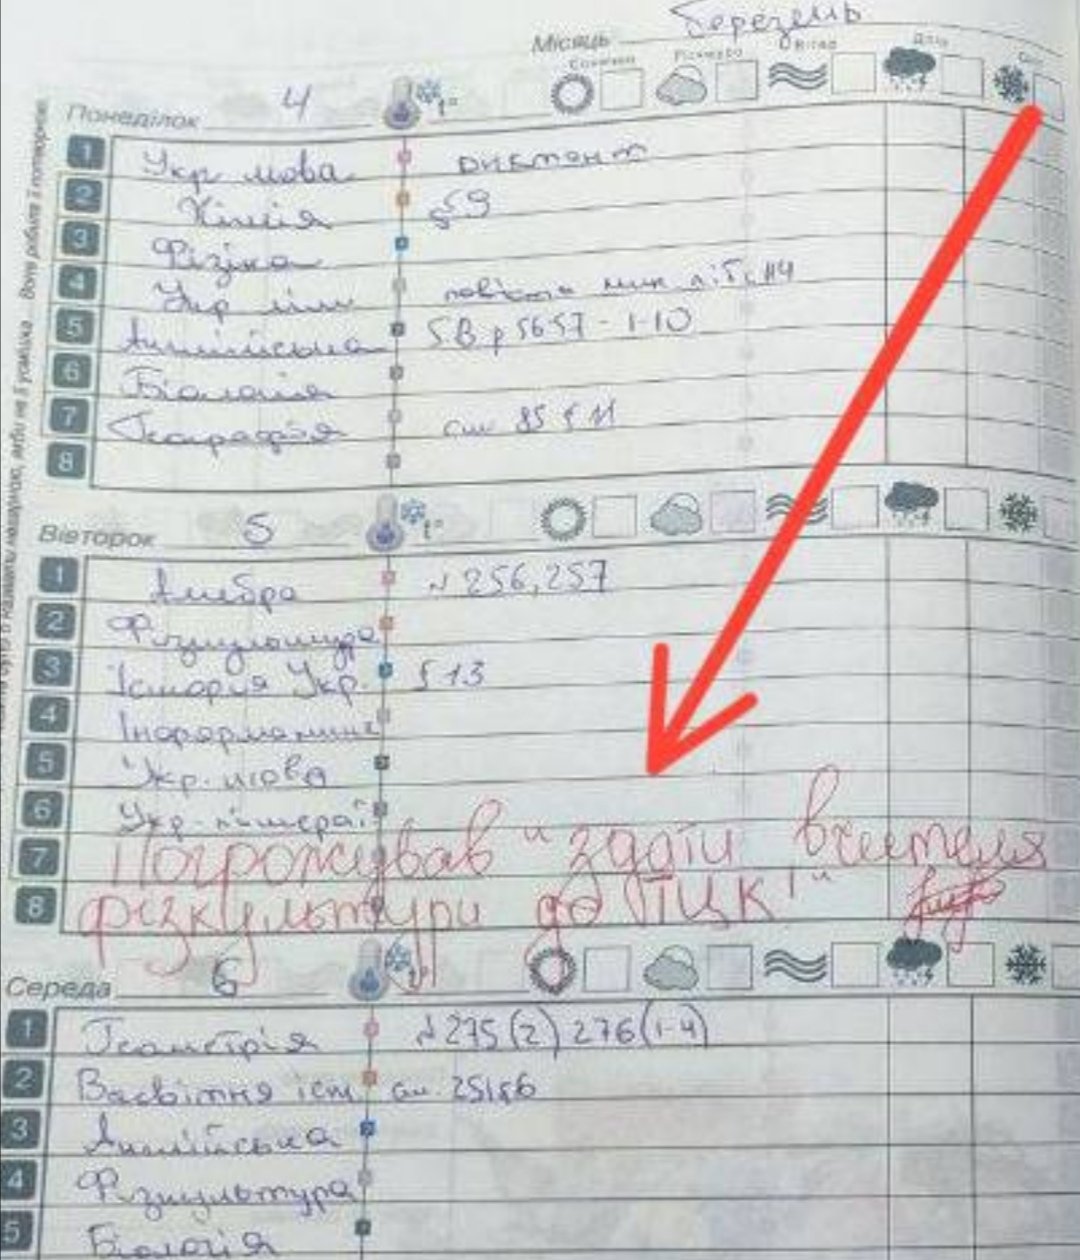 Місяць Березень
Сонячно Хмарно Вітер Дощ Сніг
Понеділок 4 t°
1 Укр мова диктант
2 Хімія §59
3 Фізика
4 Укр літ
5 Англійська SB p 56 57 - 1-10
6 Біологія
7 Географія ст 85 § 11
8
Вівторок 5 t°
1 Алгебра № 256, 257
2 Фізкультура
3 Історія Укр. § 13
4 Інформатика
5 Укр. мова
6 Укр. літерат
7 Погрожував "здати вчителя
8 фізкультури до ТЦК!"
Середа 6 t°
1 Геометрія № 275 (2) 276 (1-4)
2 Всесвітня іст
3 Англійська
4 Фізкультура
5 Біологія